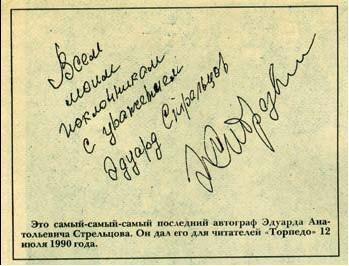 Всем
моим
поклонникам
с уважением
Эдуард Стрельцов
Это самый-самый-самый последний автограф Эдуарда Ана-
тольевича Стрельцова. Он дал его для читателей «Торпедо» 12
июля 1990 года.